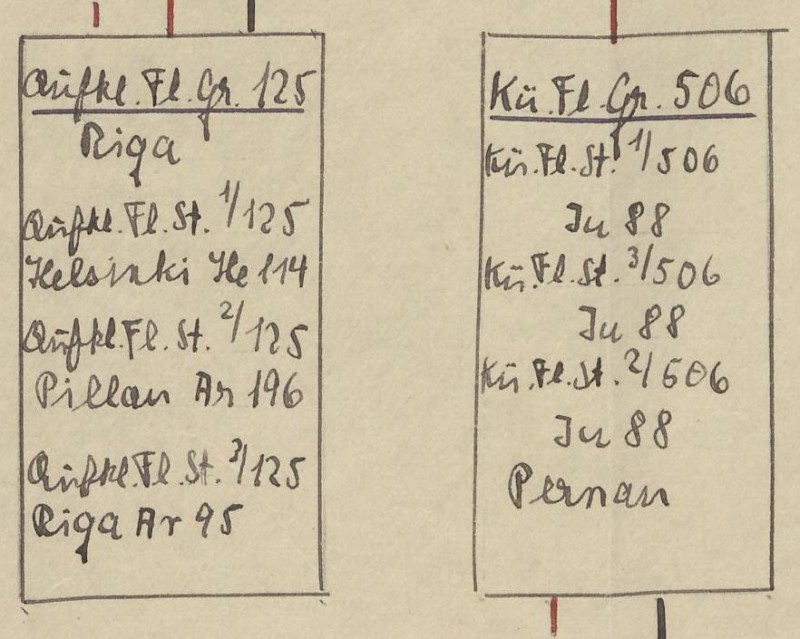 Aufkl. Fl. Gr. 125
Riga
Aufkl. Fl. St. 1/125
Helsinki He 114
Aufkl. Fl. St. 2/125
Pillau Ar 196
Aufkl. Fl. St. 3/125
Riga Ar 95
Kü. Fl. Gr. 506
Kü. Fl. St. 1/506
Ju 88
Kü. Fl. St. 3/506
Ju 88
Kü. Fl. St. 2/506
Ju 88
Pernau